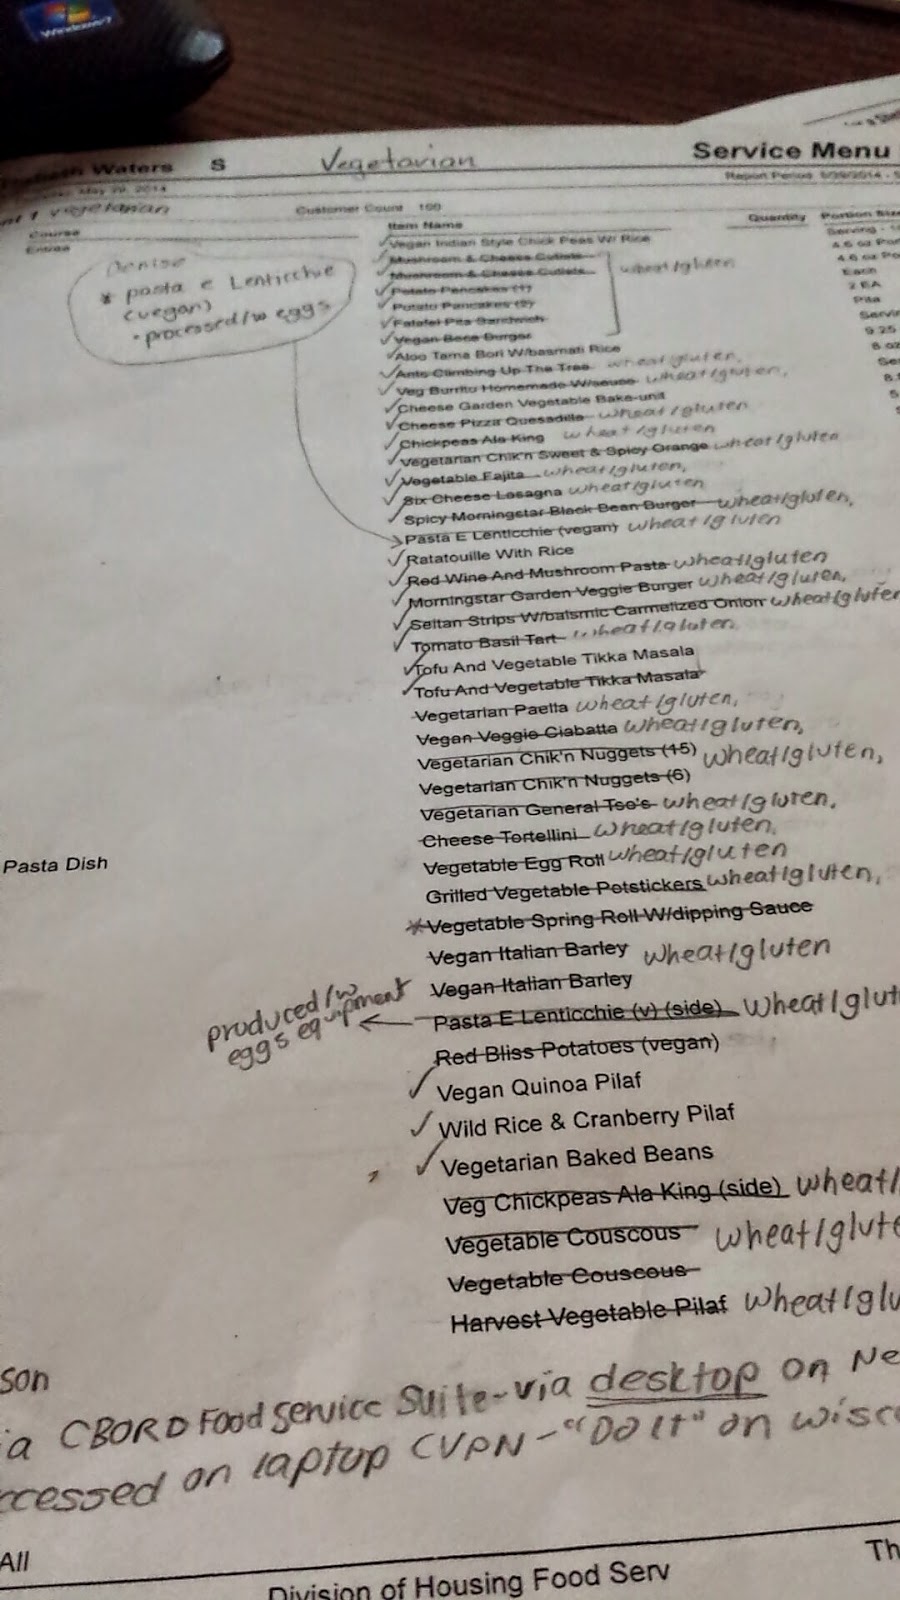 Windows 7
Waters S Vegetarian Service Menu
May 29, 2014 Report Period
1 vegetarian Customer Count 100
Course Item Name Quantity Portion Size
Entree Vegan Indian Style Chick Peas W/ Rice Serving
Denise Mushroom & Cheese Cutlets
* pasta e Lenticchie Mushroom & Cheese Cutlets wheat/gluten Each
(vegan) Potato Pancakes (1) 2 EA
- processed/w eggs Potato Pancakes (2) Pita
Falafel Pita Sandwich
Vegan Boca Burger 9.25
Aloo Tama Bori W/basmati Rice
Ants Climbing Up The Tree wheat/gluten,
Veg Burrito Homemade W/sauce wheat/gluten,
Cheese Garden Vegetable Bake-unit
Cheese Pizza Quesadilla wheat/gluten
Chickpeas Ala King wheat/gluten
Vegetarian Chik'n Sweet & Spicy Orange wheat/gluten
Vegetable Fajita wheat/gluten,
Six Cheese Lasagna wheat/gluten
Spicy Morningstar Black Bean Burger wheat/gluten,
Pasta E Lenticchie (vegan) wheat/gluten
Ratatouille With Rice
Red Wine And Mushroom Pasta wheat/gluten
Morningstar Garden Veggie Burger wheat/gluten,
Seitan Strips W/balsmic Carmelized Onion wheat/gluten
Tomato Basil Tart wheat/gluten,
Tofu And Vegetable Tikka Masala
Tofu And Vegetable Tikka Masala
Vegetarian Paella wheat/gluten,
Vegan Veggie Ciabatta wheat/gluten,
Vegetarian Chik'n Nuggets (15) wheat/gluten,
Vegetarian Chik'n Nuggets (6)
Vegetarian General Tso's wheat/gluten,
Pasta Dish Cheese Tortellini wheat/gluten,
Vegetable Egg Roll wheat/gluten
Grilled Vegetable Potstickers wheat/gluten,
*Vegetable Spring Roll W/dipping Sauce
Vegan Italian Barley wheat/gluten
produced/w Vegan Italian Barley
eggs equipment Pasta E Lenticchie (v) (side) wheat/glut
Red Bliss Potatoes (vegan)
Vegan Quinoa Pilaf
Wild Rice & Cranberry Pilaf
Vegetarian Baked Beans
Veg Chickpeas Ala King (side) wheat/
Vegetable Couscous wheat/glute
Vegetable Couscous
Harvest Vegetable Pilaf wheat/glu
son
ia CBORD Food Service Suite-via desktop on Ne
ccessed on laptop CVPN-"DoIt" on wisc
All Th
Division of Housing Food Serv